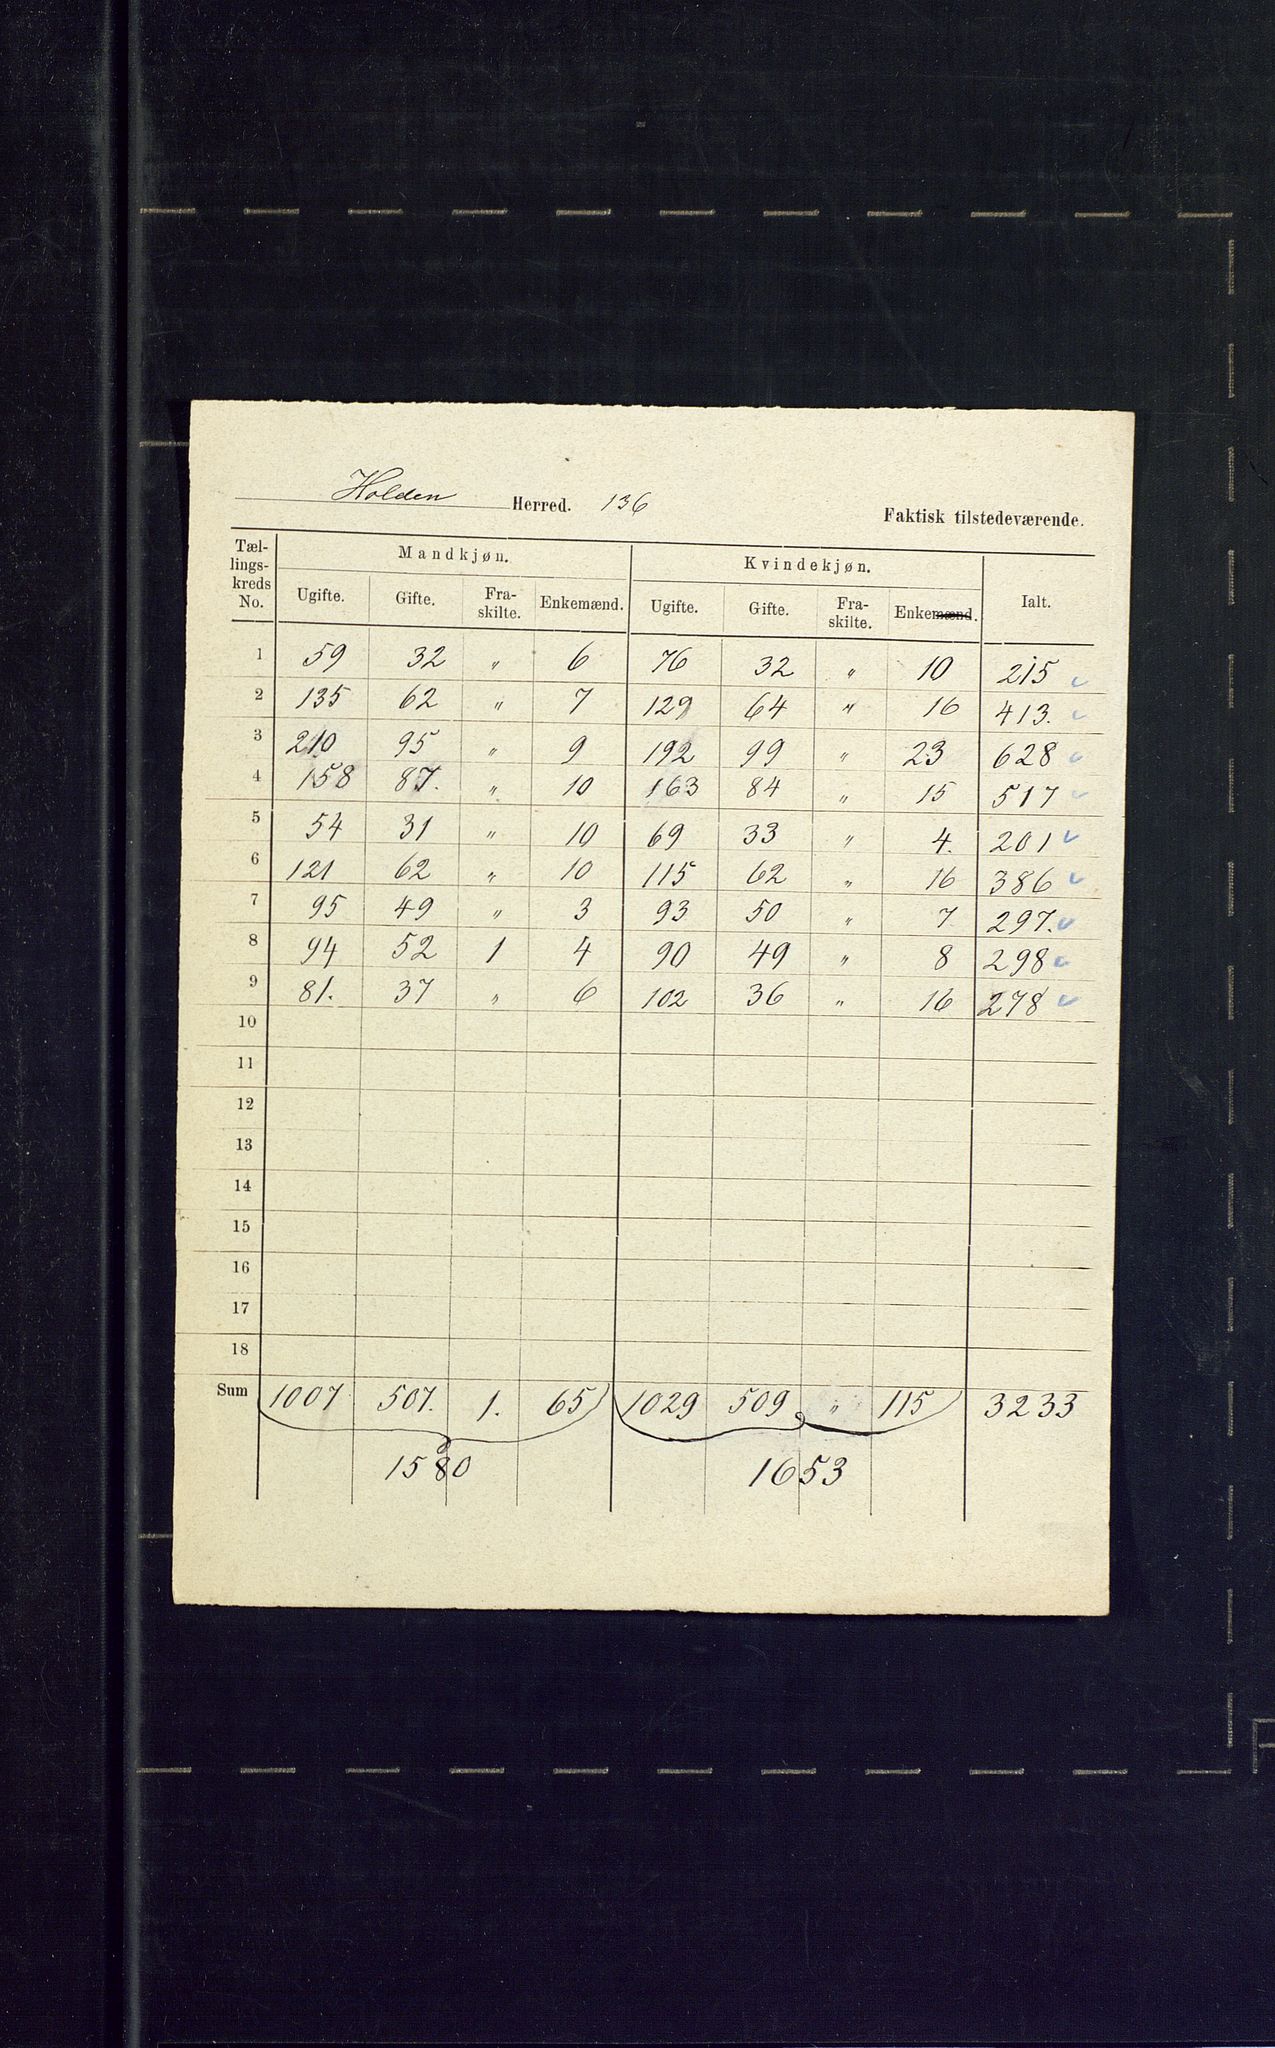 Holden Herred. 136 Faktisk tilstedeværende.
Tæl-
lings-
kreds
No. Mandkjøn. Kvindekjøn. Ialt.
Ugifte. Gifte. Fra-
skilte. Enkemænd. Ugifte. Gifte. Fra-
skilte. Enkemænd.
1 59 32 " 6 76 32 " 10 215
2 135 62 " 7 129 64 " 16 413.
3 210 95 " 9 192 99 " 23 628
4 158 87. " 10 163 84 " 15 517
5 54 31 " 10 69 33 " 4. 201
6 121 62 " 10 115 62 " 16 386
7 95 49 " 3 93 50 " 7 297.
8 94 52 1 4 90 49 " 8 298
9 81. 37 " 6 102 36 " 16 278
10
11
12
13
14
15
16
17
18
Sum 1007 507. 1. 65 1029 509 " 115 3233
1580 1653